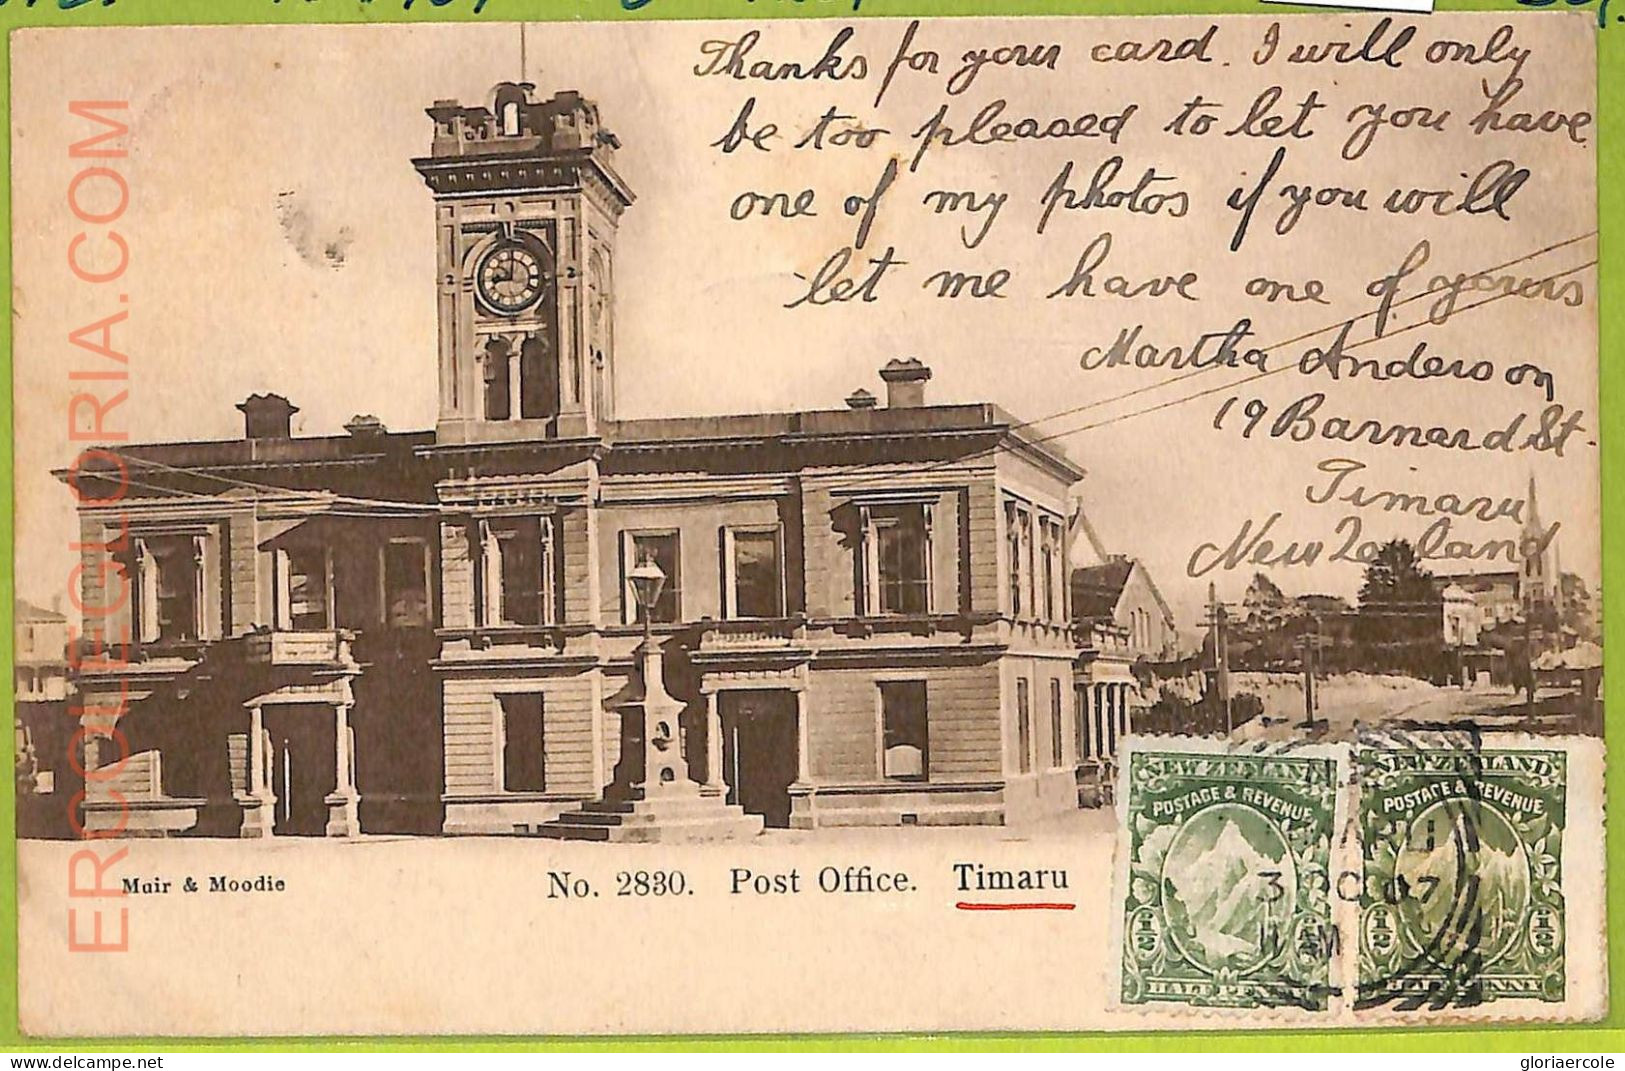 Thanks for your card. I will only
be too pleased to let you have
one of my photos if you will
let me have one of yours
Martha Anderson
19 Barnard St.
Timaru
New Zealand
NEW ZEALAND
POSTAGE & REVENUE
1/2 1/2
HALF PENNY
NEW ZEALAND
POSTAGE & REVENUE
1/2 1/2
HALF PENNY
3 OC 07
11 AM
Muir & Moodie
No. 2830. Post Office. Timaru
ERCOLEGLORIA.COM
delcampe.net
gloriaercole